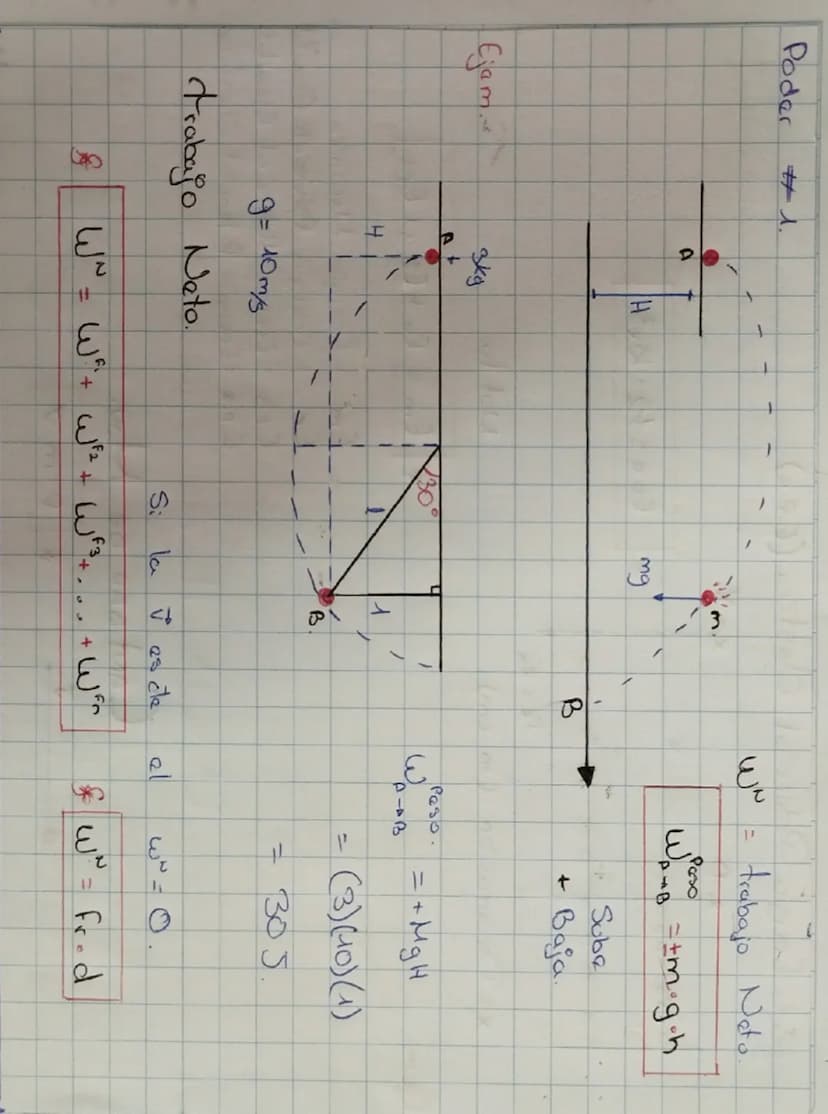 Poder #1.
Wᴺ = trabajo Neto.
A
H
mg
m.
B
W Peso A→B = ±m·g·h
- Sube
+ Baja.
Ejam.
3kg
A
H
30°
1
B.
g = 10m/s
W Peso. A→B = +MgH
= (3)(10)(1)
= 30 J.
trabajo Neto.
Si la v⃗ es cte el Wᴺ = 0.
Wᴺ = Wᶠ¹ + Wᶠ² + Wᶠ³ + ... + Wᶠⁿ
Wᴺ = Fr·d